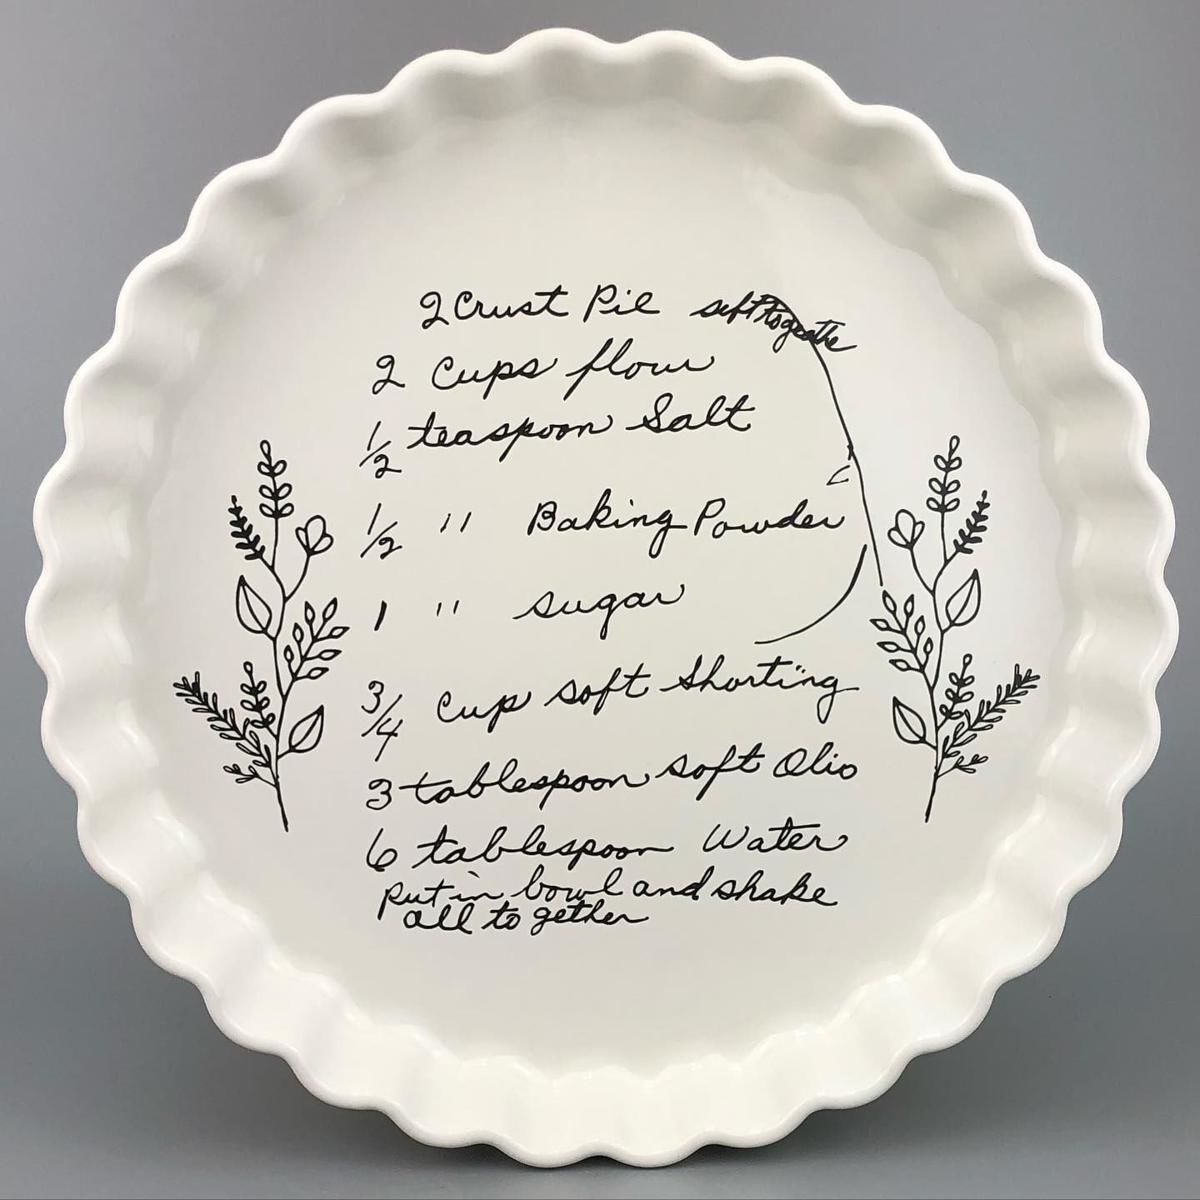 2 Crust Pie sift togeathe
2 Cups flour
1/2 teaspoon Salt
1/2 " Baking Powder
1 " sugar
3/4 Cup soft Shorting
3 tablespoon soft Olio
6 tablespoon Water
Put in bowl and shake
all to gether